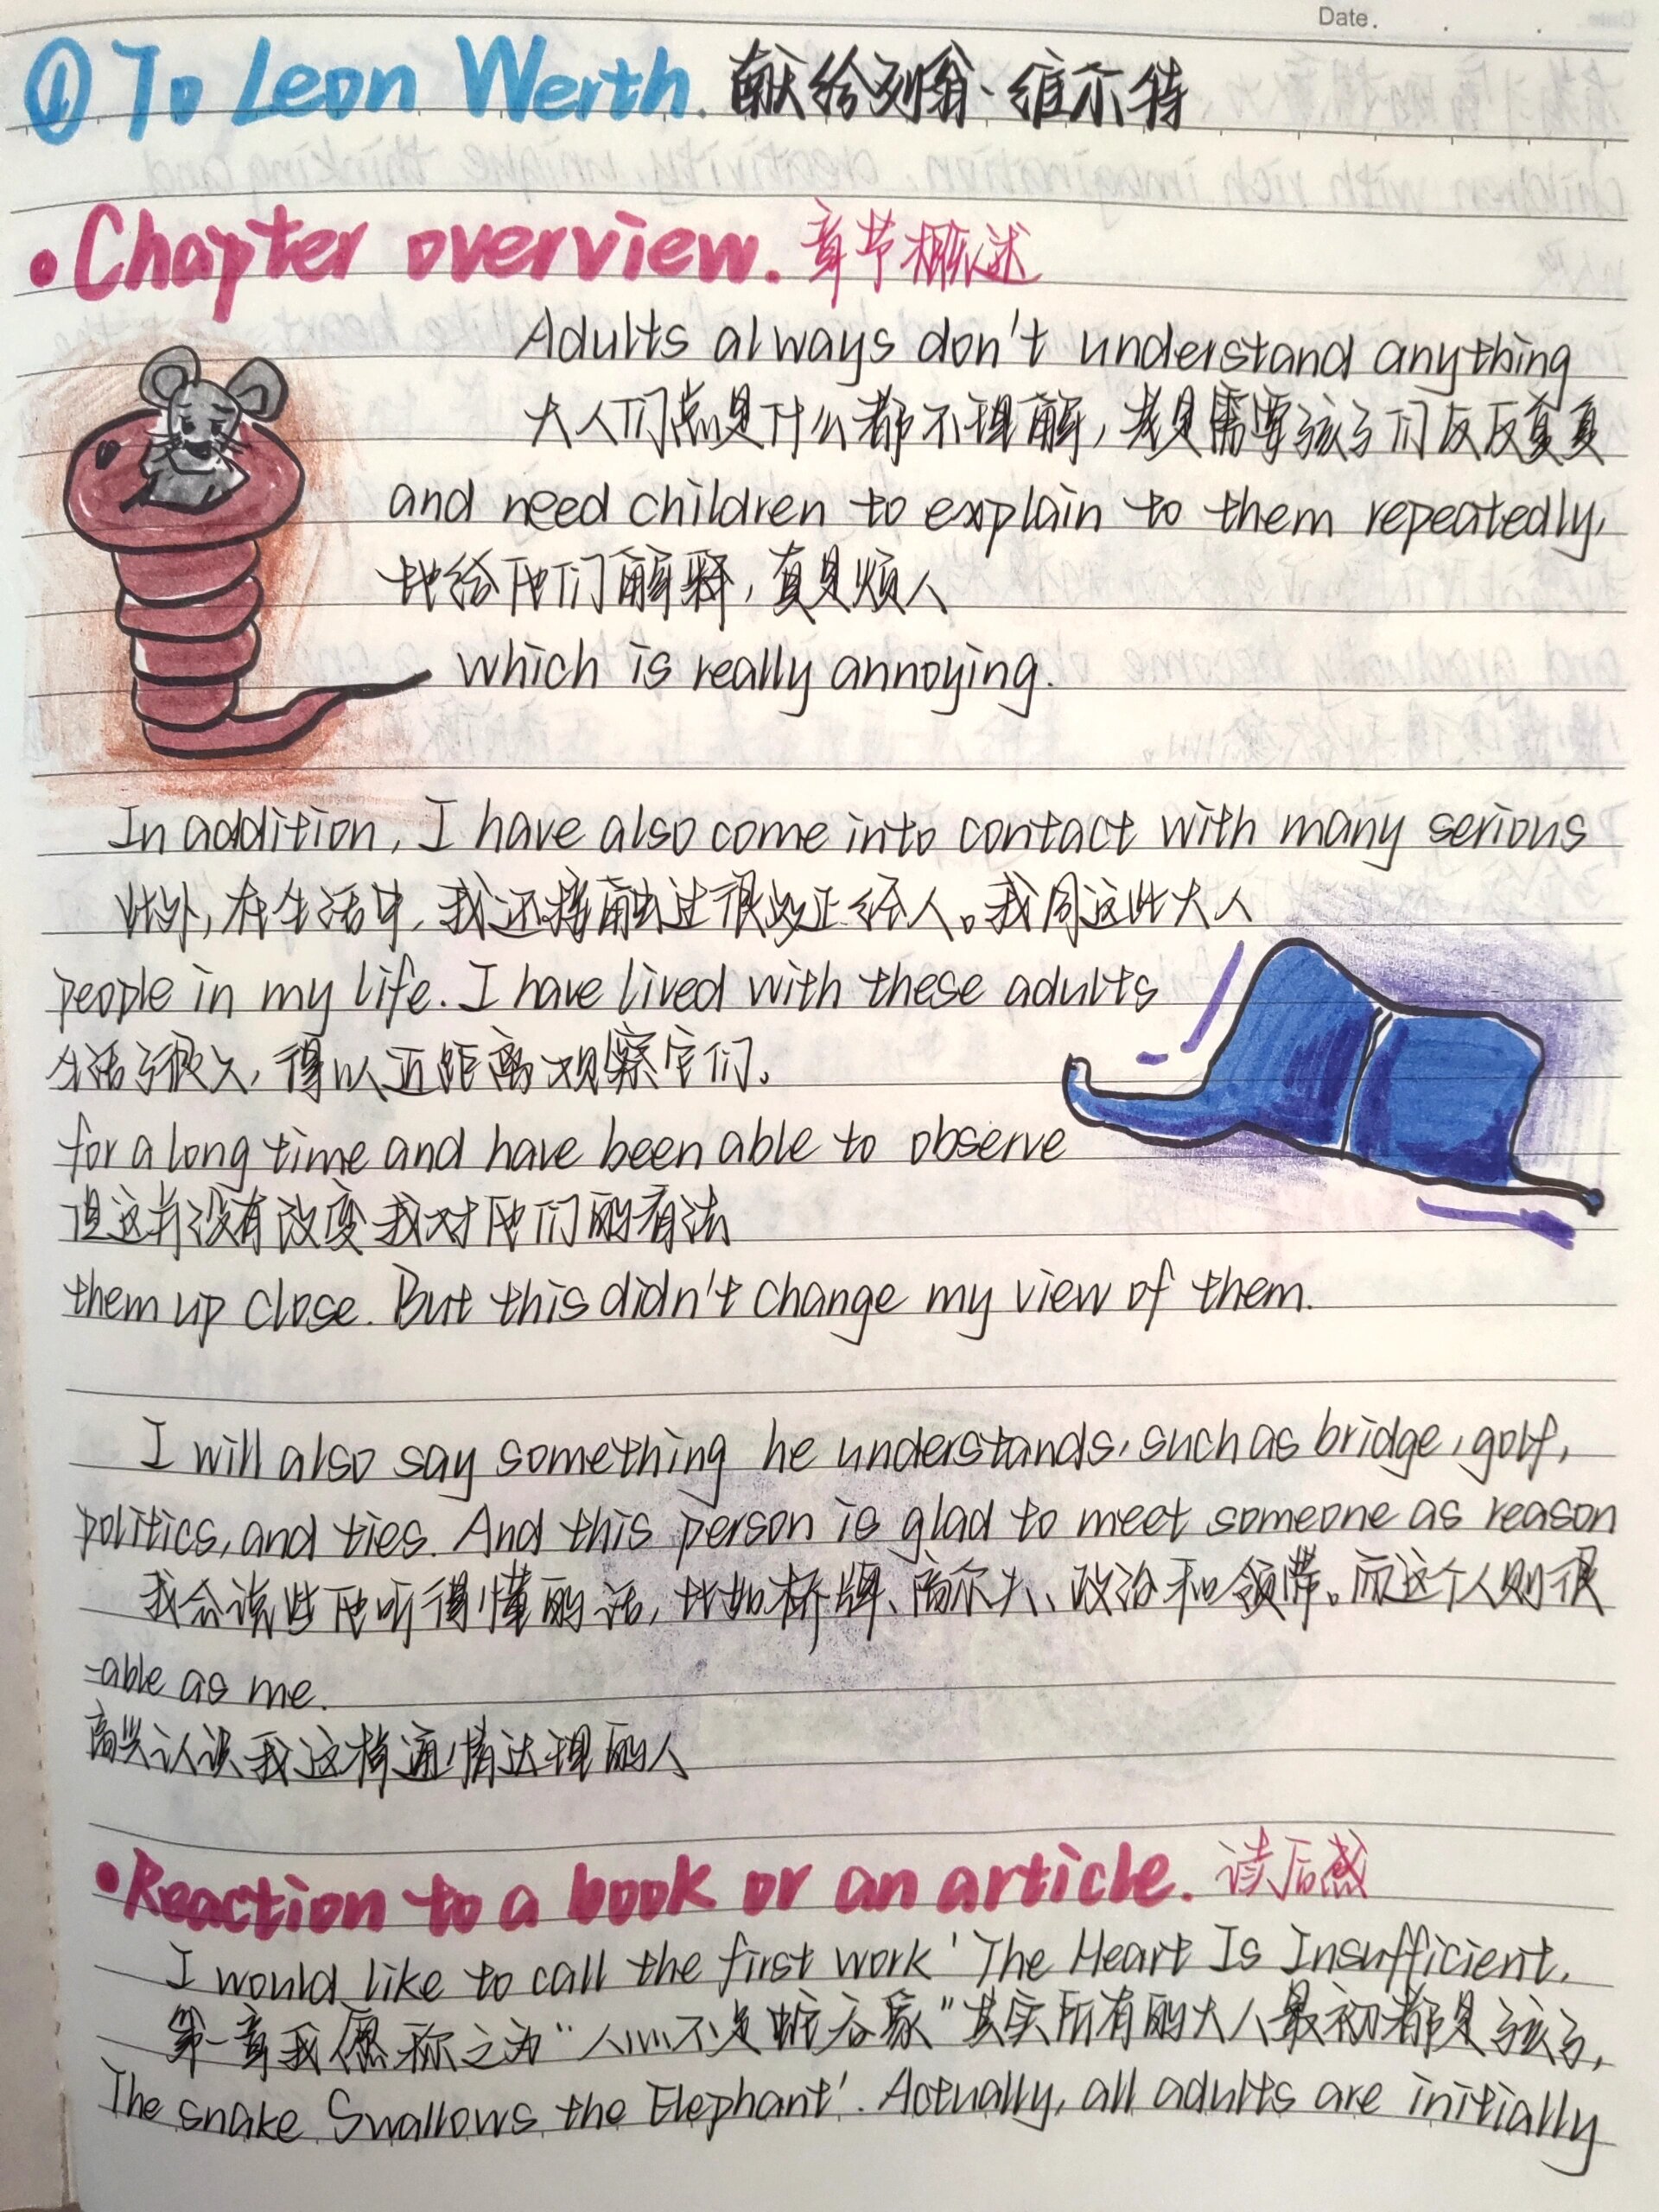 Date.
① To Leon Werth. 献给列翁·维尔特
• Chapter overview. 章节概述
Adults always don't understand anything
大人们总是什么都不理解，老是需要孩子们反反复复
and need children to explain to them repeatedly,
地给他们解释，真是烦人
which is really annoying.
In addition, I have also come into contact with many serious
此外，在生活中，我还接触过很多正经人。我同这些大人
people in my life. I have lived with these adults
生活了很久，得以近距离观察它们。
for a long time and have been able to observe
但这并没有改变我对他们的看法
them up close. But this didn't change my view of them.
I will also say something he understands, such as bridge, golf,
politics, and ties. And this person is glad to meet someone as reason
我会说些他听得懂的话，比如桥牌、高尔夫、政治和领带。而这个人则很
-able as me.
高兴认识我这样通情达理的人
• Reaction to a book or an article. 读后感
I would like to call the first work 'The Heart Is Insufficient.
第一章我愿称之为“人心不足蛇吞象”其实所有的大人最初都是孩子，
The snake Swallows the Elephant'. Actually, all adults are initially